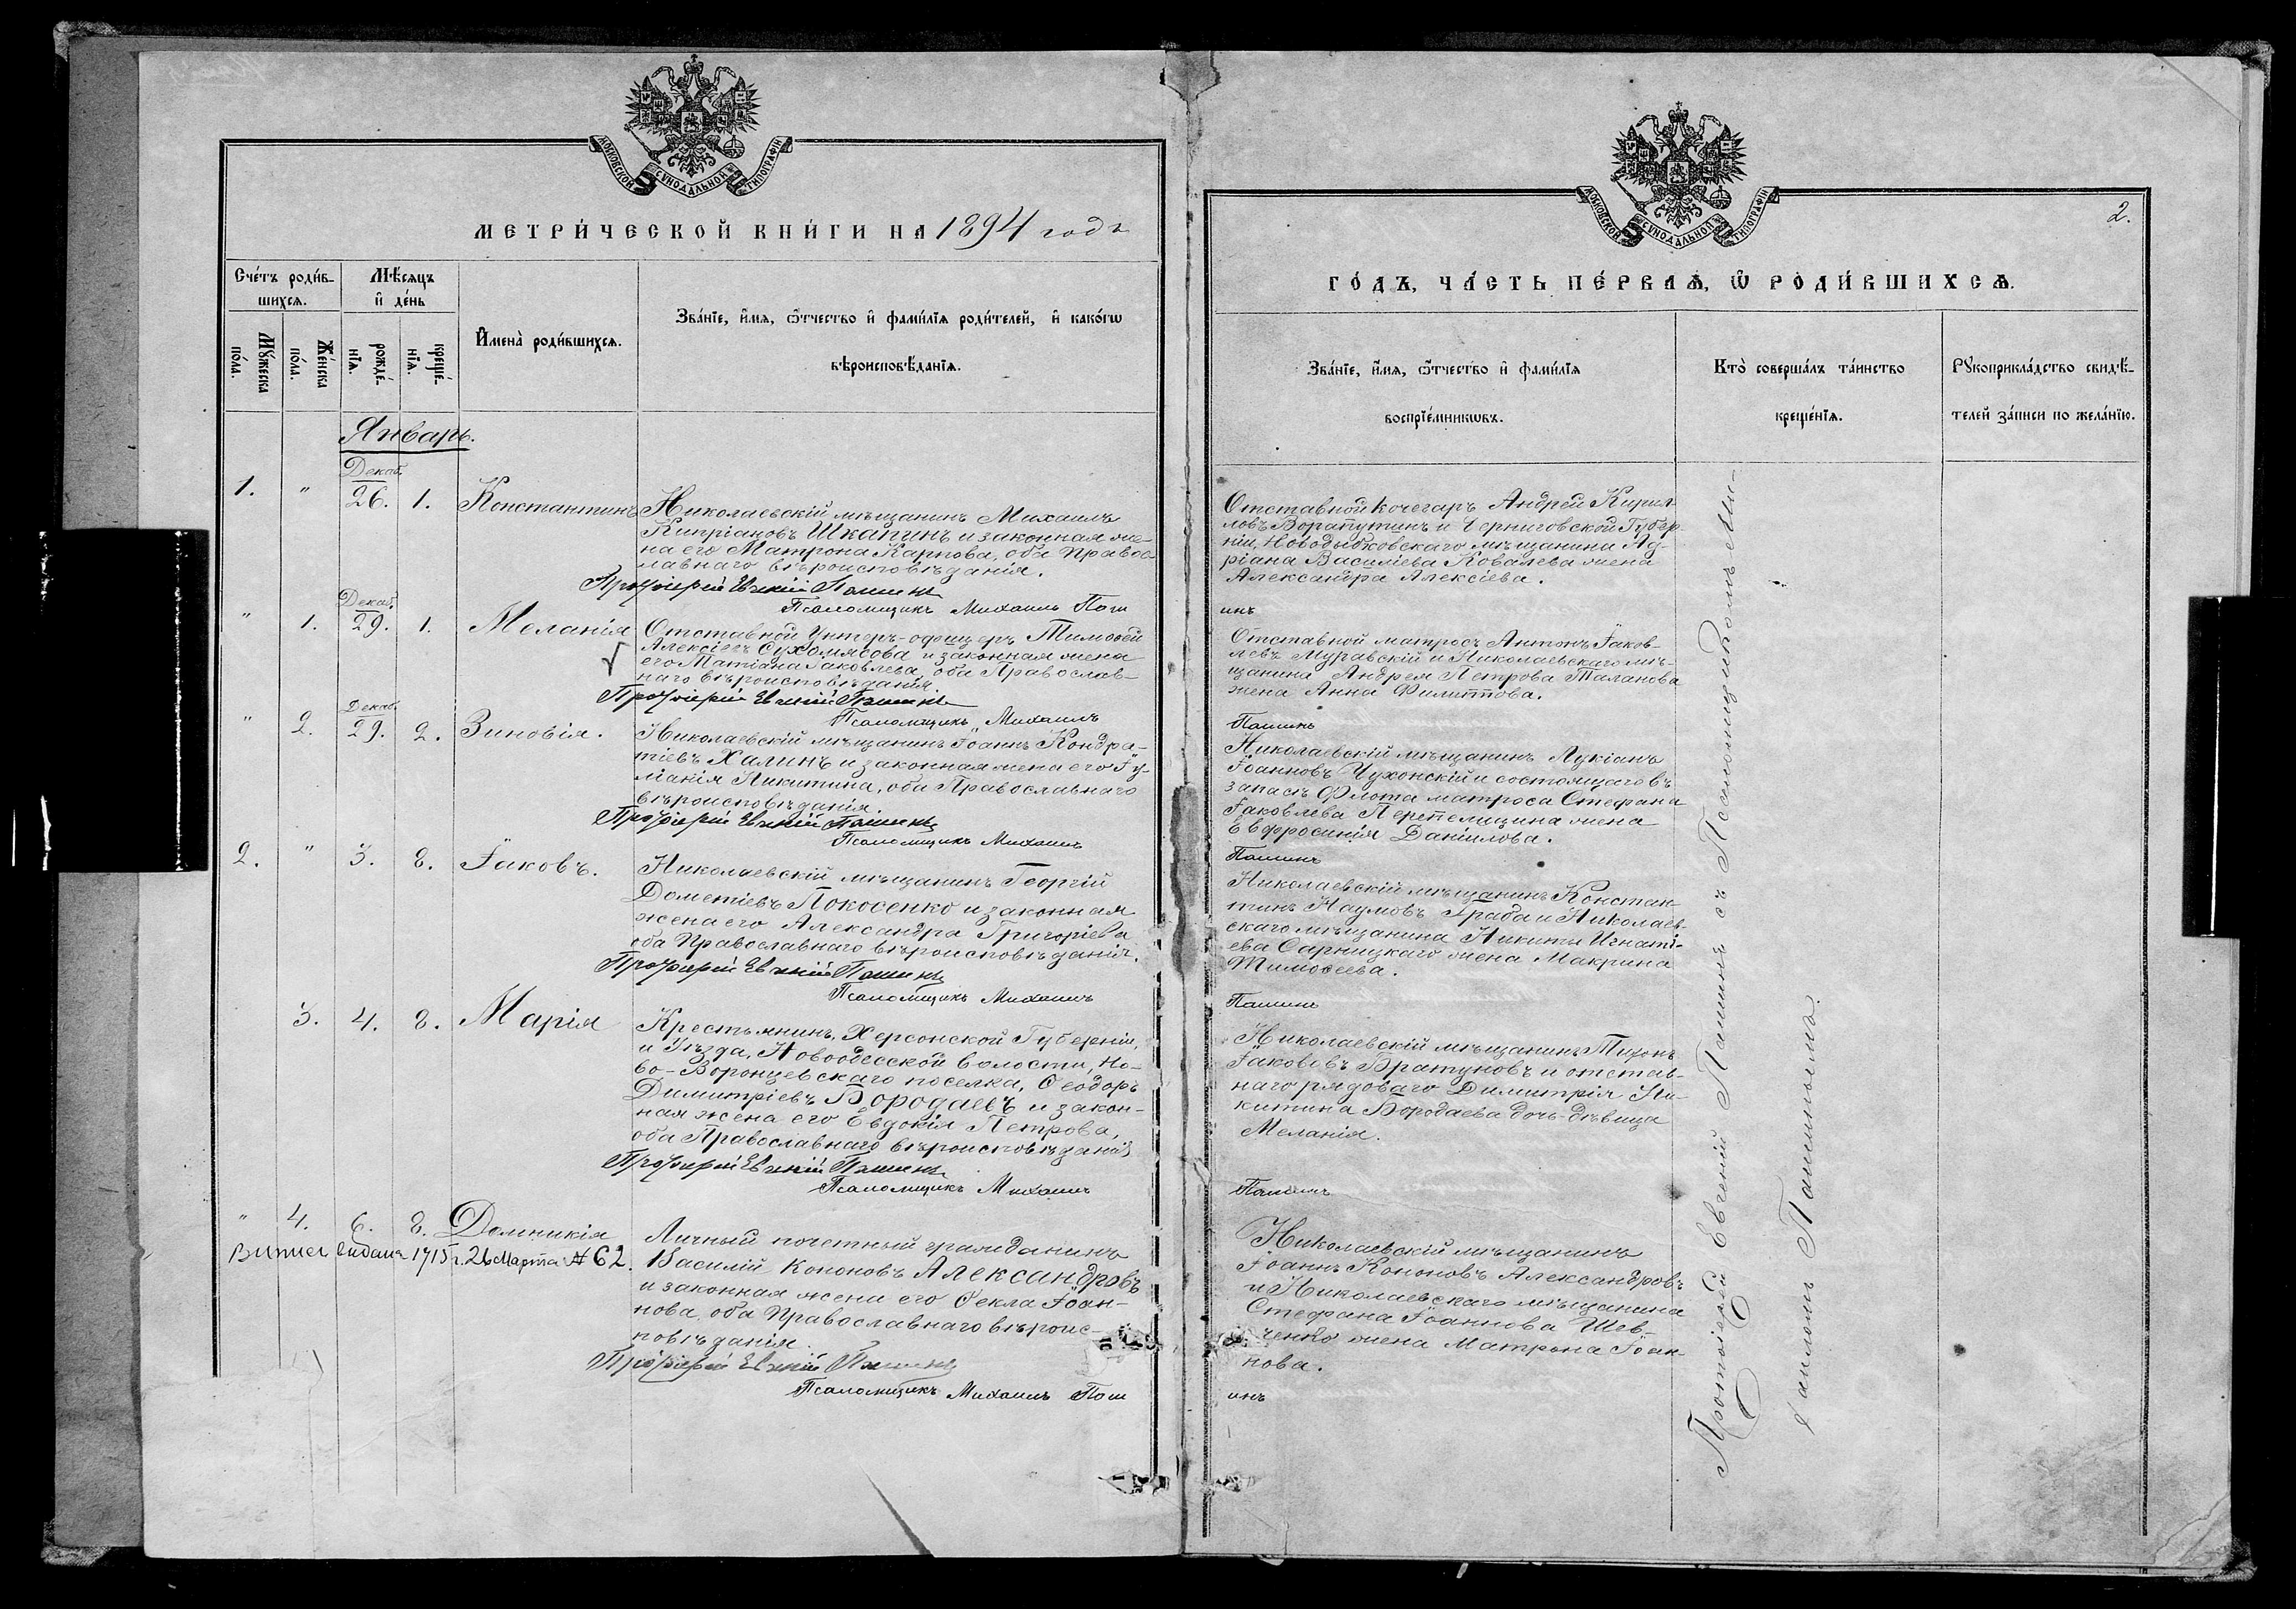 МОСКОВСКОЙ СѴНОДАЛЬНОЙ ТИПОГРАФІИ
МЕТРИ́ЧЕСКОЙ КНИ́ГИ НА 1894 годъ
Сче́тъ роди́в-
шихсѧ.
Мѣ́сѧцъ
и҆ де́нь
Мꙋ́жеска
по́ла.
Же́нска
по́ла.
рожде́-
нїѧ.
креще́-
нїѧ.
И҆мена̀ роди́вшихсѧ.
Зва́нїе, и҆́мѧ, ѻ҆́тчество и҆ фами́лїѧ роди́телей, и҆ како́гѡ
вѣроисповѣ́данїѧ.
Январь.
Декаб.
1. " 26. 1. Константинъ
Николаевскій мѣщанинъ Михаилъ
Кипріановъ Шкапинъ и законная же-
на его Матрона Карпова, оба Правос-
лавнаго вѣроисповѣданія.
Протоіерей Евгеній Пашинъ
Псаломщикъ Михаилъ Паш
Декаб.
" 1. 29. 1. Меланія
Отставной Унтеръ-офицеръ Тимоѳей
Алексіевъ Сухомясова и законная жена
его Татіана Іаковлева, оба Православ-
наго вѣроисповѣданія
Протоіерей Евгеній Пашинъ
Псаломщикъ Михаилъ
Декаб.
" 2. 29. 2. Зиновія.
Николаевскій мѣщанинъ Іоаннъ Кондра-
тіевъ Халинъ и законная жена его Іу-
ліанія Никитина, оба Православнаго
вѣроисповѣданія.
Протоіерей Евгеній Пашинъ
Псаломщикъ Михаилъ
2. " 3. 8. Іаковъ.
Николаевскій мѣщанинъ Георгій
Дометіевъ Покосенко и законная
жена его Александра Григоріева
оба Православнаго вѣроисповѣданія.
Протоіерей Евгеній Пашинъ
Псаломщикъ Михаилъ
3. 4. 8. Марія
Крестьянинъ, Херсонской Губерніи,
и Уѣзда, Новоодесской волости, Но-
во-Воронцевскаго поселка, Ѳеодоръ
Димитріевъ Бородаевъ и закон-
ная жена его Евдокія Петрова,
оба Православнаго вѣроисповѣданія
Протоіерей Евгеній Пашинъ
Псаломщикъ Михаилъ
" 4. 6. 8. Домникія
Выпись видана 1915 г. 26 Марта № 62.
Личный почетный гражданинъ
Василій Кононовъ Александровъ
и законная жена его Ѳекла Іоан-
нова, оба Православнаго вѣроис-
повѣданія.
Протоіерей Евгеній Пашинъ
Псаломщикъ Михаилъ Паш
МОСКОВСКОЙ СѴНОДАЛЬНОЙ ТИПОГРАФІИ
2.
ГО́ДЪ, ЧА́СТЬ ПЕ́РВАѦ, Ѡ҆ РОДИ́ВШИХСѦ.
Зва́нїе, и҆́мѧ, ѻ҆́тчество и҆ фами́лїѧ
воспрїе́мникѡвъ.
Кто̀ соверша́лъ та́инство
креще́нїѧ.
Рꙋкоприкла́дство свидѣ́-
телей за́писи по жела́нїю.
Отставной Кочегаръ Андрей Кирил-
ловъ Ворапутинъ и Черниговской Губер-
ніи, Новодыбковскаго мѣщанина Ад-
ріана Василіева Ковалева жена
Александра Алексіева.
инъ
Отставной матросъ Антонъ Іаков-
левъ Муравскій и Николаевскаго мѣ-
щанина Андрея Петрова Таланова
жена Анна Филиппова.
Пашинъ
Николаевскій мѣщанинъ Лукіанъ
Іоанновъ Чухонскій и состоящаго въ
запасѣ Флота матроса Стефана
Іаковлева Перепелицина жена
Евфросинія Даніилова.
Пашинъ
Николаевскій мѣщанинъ Констан-
тинъ Наумовъ Граба и Николаев-
скаго мѣщанина Никиты Игнаті-
ева Сарницкаго жена Макрина
Тимоѳеева.
Пашинъ
Николаевскій мѣщанинъ Тихонъ
Іаковлевъ Братуновъ и отстав-
наго рядоваго Димитрія Ни-
китина Бородаева дочь-дѣвица
Меланія.
Пашинъ
Николаевскій мѣщанинъ
Іоаннъ Кононовъ Александровъ
и Николаевскаго мѣщанина
Стефана Іоаннова Шев-
ченко жена Матрона Іоан-
нова.
инъ
Протоіерей Евгеній Пашинъ съ Псаломщикомъ Ми-
хаиломъ Пашинымъ.